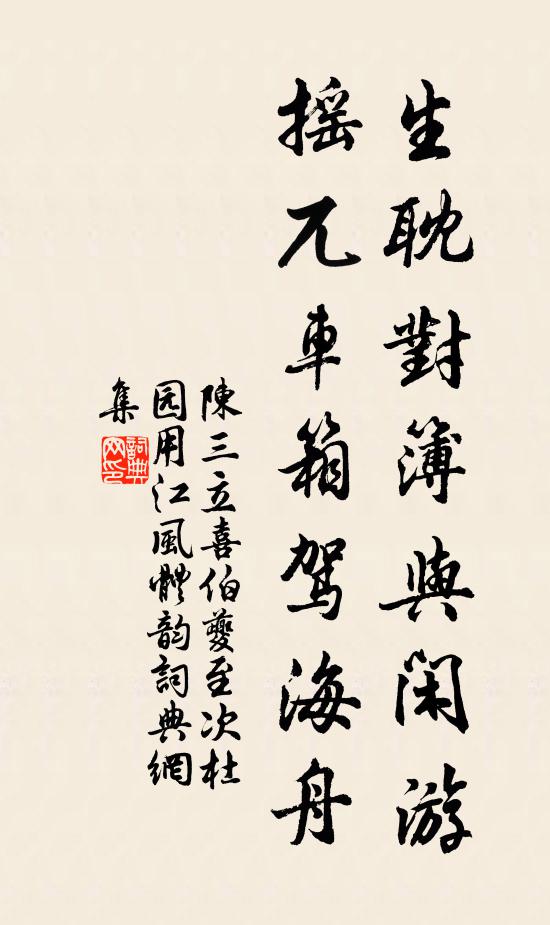 生耽對簿與閑游
搖兀車箱駕海舟
陳三立喜伯夔至次杜
园用江風體韵詞典網
集
詞典
网印